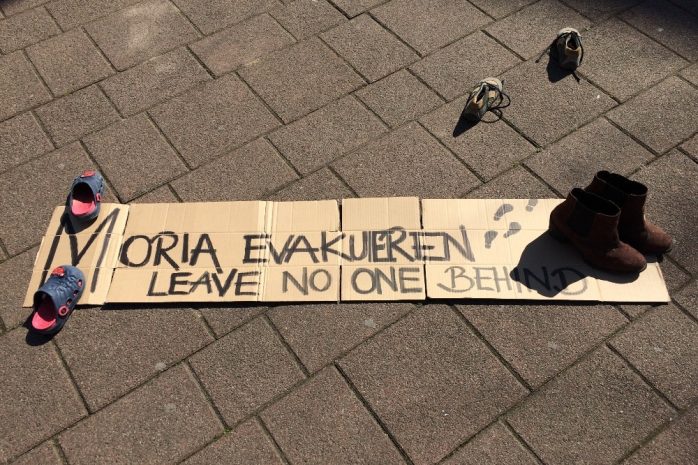 MORIA EVAKUIEREN
LEAVE NO ONE BEHIND